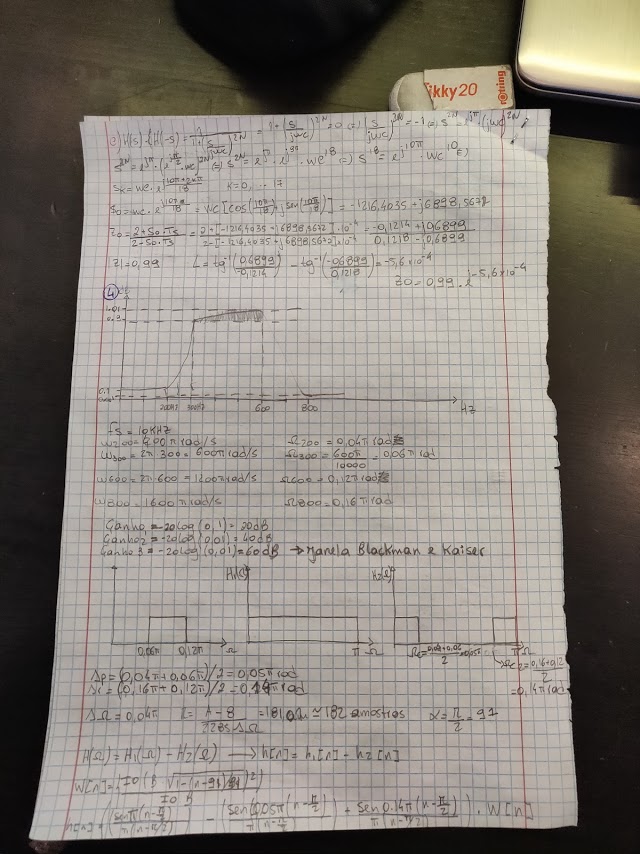 ikky20
rotring
c) H(s)·H(-s) = 1/(1+(s/jwc)^2N) = 1+(s/jwc)^2N = 0 (=) (s/jwc)^2N = -1 (=) s^2N = e^jπ (jwc)^2N
Sk = wc·e^j(10π+2kπ)/18 K=0,...17
S0 = wc·e^j10π/18 = wc[cos(10π/18)+jsen(10π/18)] = -1216,4035+j6898,5672
Z0 = 2+S0·Ts/2-S0·Ts = 2+[-1216,4035+j6898,5672]·10^-4/2-[-1216,4035+j6898,5672]·10^-4 = -0,1214+j0,6899/0,1218-j0,6899
|Z|=0,99 L=tg^-1(0,6899/-0,1214) - tg^-1(-0,6899/0,1218) = -5,6×10^-4
Z0=0,99·e^j-5,6×10^-4
4
200Hz 300Hz 600 800 Hz
fs = 10KHz
w200 = 400π rad/s Ω200 = 0,04π rad
w300 = 2π·300 = 600π rad/s Ω300 = 600π/10000 = 0,06π rad
w600 = 2π·600 = 1200π rad/s Ω600 = 0,12π rad
w800 = 1600π rad/s Ω800 = 0,16π rad
Ganho1 = -20log(0,1) = 20dB
Ganho2 = -20log(0,01) = 40dB
Ganho3 = -20log(0,01) = 60dB → Janela Blackman e Kaiser
H1(Ω) H2(Ω)
0,06π 0,12π Ω π Ω Ωc1=0,04+0,06/2=0,05π π Ω
Ωc2=0,16+0,12/2
=0,14π rad
Δp = (0,04π+0,06π)/2 = 0,05π rad
Δr = (0,16π+0,12π)/2 = 0,14π rad
ΔΩ = 0,04π = A-8/2285ΔΩ ≃ 182 amostras α = /2 = 91
H(Ω) = H1(Ω) - H2(Ω) → h[n] = h1[n] - h2[n]
W[n] = I0(β√1-(n-91/91)^2)
I0 β
h[n] = (senπ(n-π/2)/π(n-π/2)) - (sen0,05π(n-π/2)/π(n-π/2) + sen0,14π(n-π/2)/π(n-π/2)) · W[n]